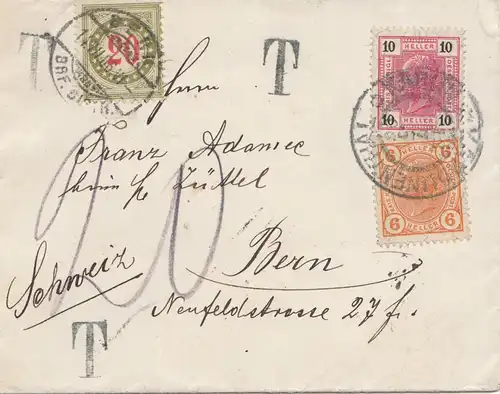 T
BERN
20
T
10 10
HELLER
10 10
6 HELLER 6
Herrn
Franz Adamec
beim H. Züttel
20
Schweiz
Bern
Neufeldstrasse 27 f.
T